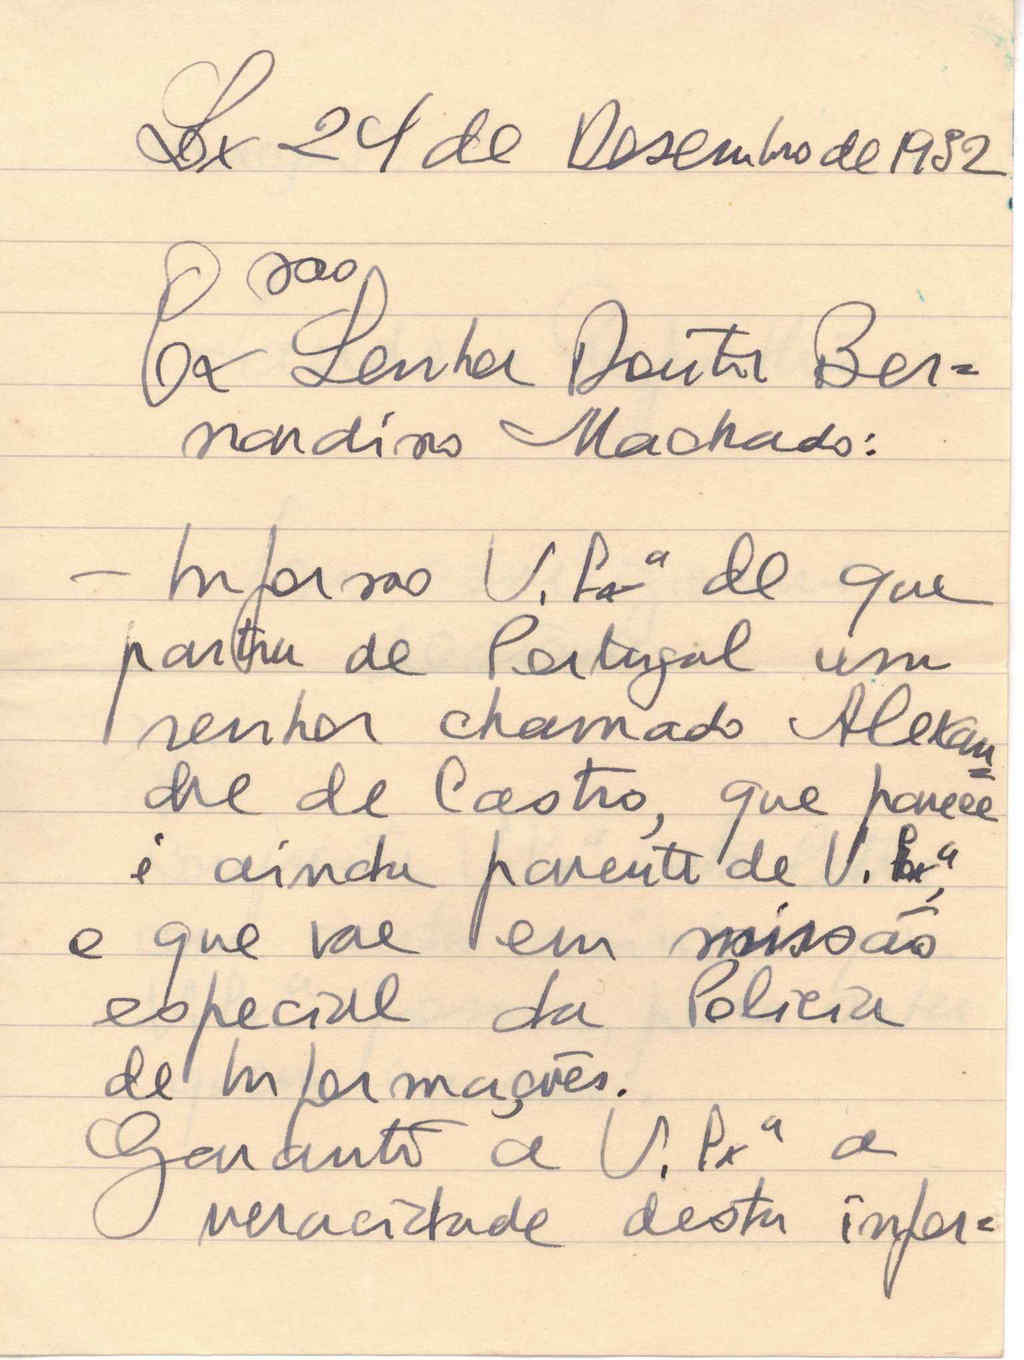 Lx 24 de Desembro de 1932
Ex mo
Senhor Doutor Ber=
nardino Machado:
- Informo V. Exª de que
partiu de Portugal um
senhor chamado Alexan=
dre de Castro, que parece
é ainda parente de V. Exª,
e que vae em missão
especial da Policia
de Informações.
Garanto a V. Exª a
veracidade desta infor=